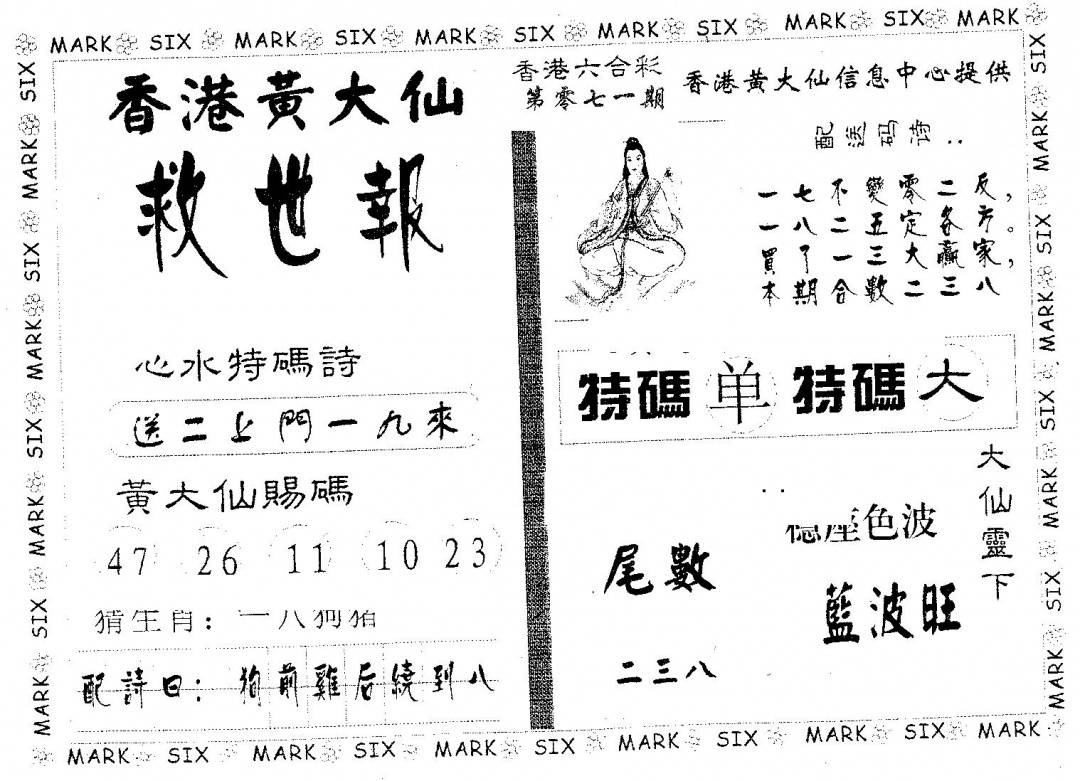 MARK SIX MARK SIX MARK SIX MARK SIX MARK SIX MARK
香港黃大仙
救世報
心水特碼詩
送二上門一九來
黃大仙賜碼
47 26 11 10 23
猜生肖：一八狗猪
配詩曰：狗前雞后繞到八
香港六合彩
第零七一期
香港黃大仙信息中心提供
配送码诗：
一七不變零二反，
一八二五定各方。
買了一三大贏家，
本期合數二三八
特碼 单 特碼 大
大仙靈下
色波
藍波旺
尾數
二三八
SIX MARK SIX MARK SIX MARK SIX MARK
SIX MARK SIX MARK SIX MARK SIX MARK
MARK SIX MARK SIX MARK SIX MARK SIX MARK SIX MARK